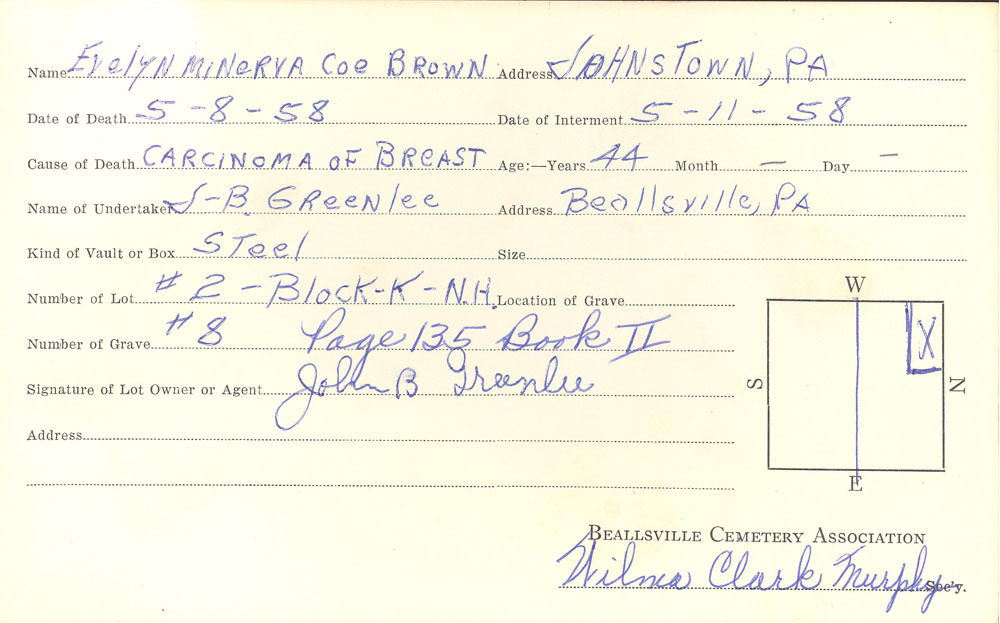 Name Evelyn Minerva Coe Brown Address Johnstown, PA
Date of Death 5-8-58 Date of Interment 5-11-58
Cause of Death Carcinoma of Breast Age:—Years 44 Month — Day —
Name of Undertaker J-B Greenlee Address Beallsville, PA
Kind of Vault or Box Steel Size
Number of Lot #2-Block-K-N.H. Location of Grave
Number of Grave #8 Page 135 Book II
Signature of Lot Owner or Agent John B Greenlee
Address
W
X
S
N
E
Beallsville Cemetery Association
Wilma Clark Murphy Sec'y.